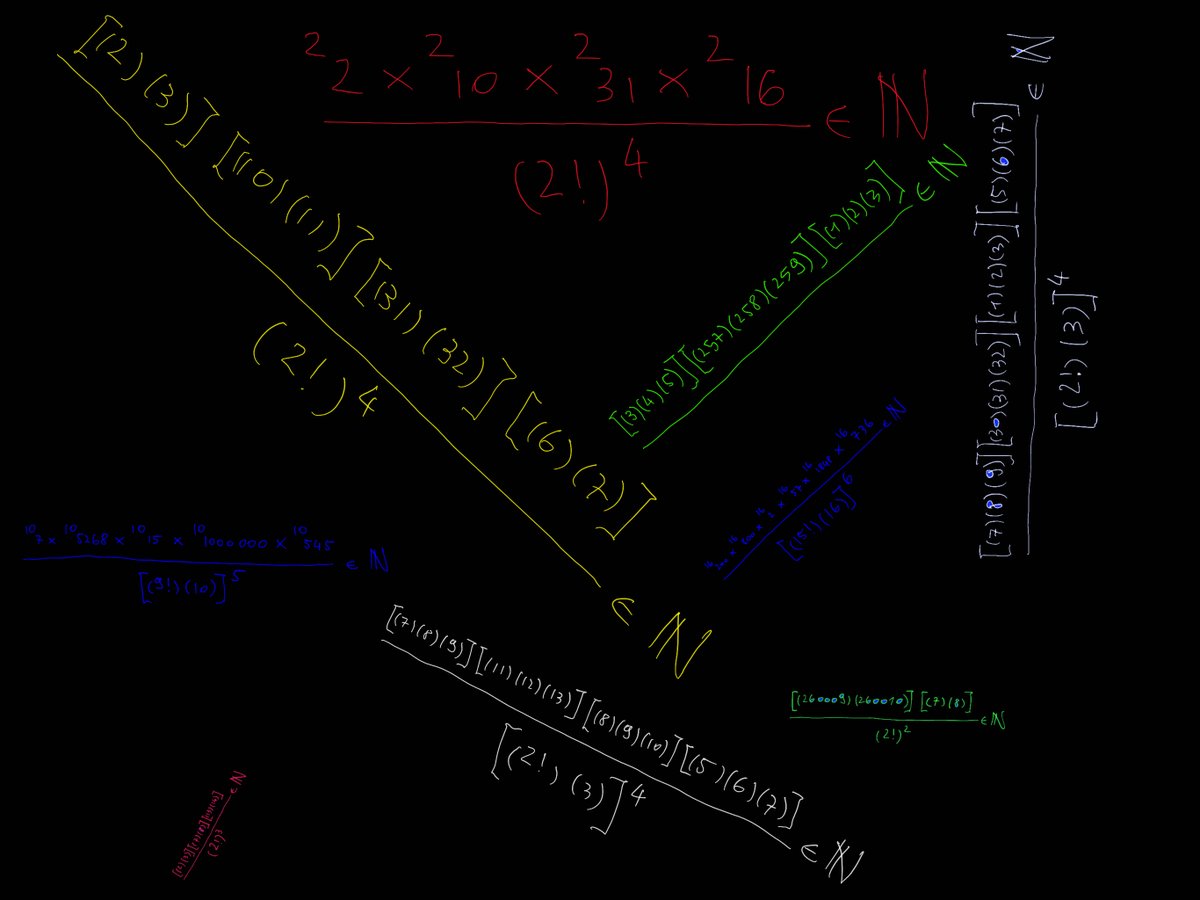 ²2 × ²10 × ²31 × ²16 ∈ ℕ
(2!)⁴
[(2)(3)] [(10)(11)] [(31)(32)] [(6)(7)] ∈ ℕ
(2!)⁴
[(3)(4)(5)][(257)(258)(259)][(1)(2)(3)] ∈ ℕ
[(7)(8)(9)][(30)(31)(32)][(1)(2)(3)][(5)(6)(7)] ∈ ℕ
[(2!)(3)]⁴
[(15!)(16)]⁶
¹⁰7 × ¹⁰5268 × ¹⁰15 × ¹⁰1000000 × ¹⁰545 ∈ ℕ
[(9!)(10)]⁵
[(7)(8)(9)][(11)(12)(13)][(8)(9)(10)][(5)(6)(7)] ∈ ℕ
[(2!)(3)]⁴
[(260009)(260010)] [(7)(8)] ∈ ℕ
(2!)²
∈ ℕ
(2!)³